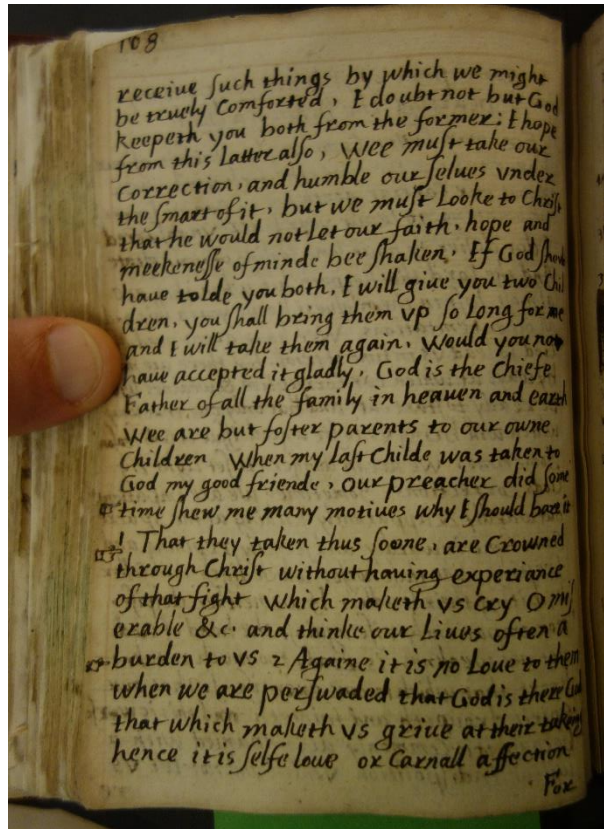 108
receiue such things by which we might
be truely Comforted, I doubt not but God
keepeth you both from the former: I hope
from this latter also, Wee must take our
Correction, and humble our selues vnder
the smart of it, but we must Looke to Christ
that he would not Let our faith, hope and
meekenesse of minde bee shaken. If God should
haue tolde you both, I will giue you two Chil
dren, you shall bring them vp so Long for me
and I will take them again, Would you not
haue accepted it gladly, God is the Chiefe
Father of all the family in heauen and earth
Wee are but foster parents to our owne
Children When my Last Childe was taken to
God my good friende, our preacher did some
time shew me many motiues why I should beare it
1 That they taken thus soone, are Crowned
through Christ without hauing experiance
of that fight Which maketh vs Cry O mis
erable &c. and thinke our Liues often a
burden to vs 2 Againe it is no Loue to them
when we are perswaded that God is there God
that which maketh vs griue at their takeing
hence it is selfe loue or Carnall affection
For